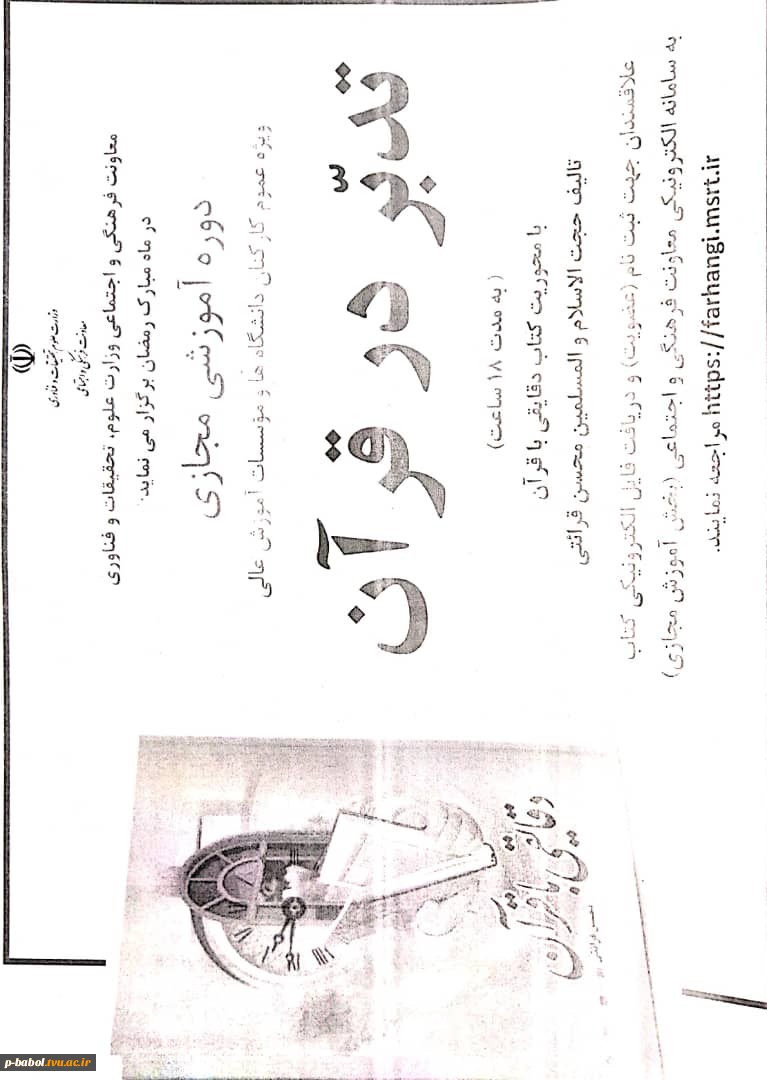 وزارت علوم، تحقیقات و فناوری
معاونت فرهنگی و اجتماعی
معاونت فرهنگی و اجتماعی وزارت علوم، تحقیقات و فناوری
در ماه مبارک رمضان برگزار می نماید.
دوره آموزشی مجازی
ویژه عموم کارکنان دانشگاه ها و مؤسسات آموزش عالی
تدبّر در قرآن
( به مدت ۱۸ ساعت)
با محوریت کتاب دقایقی با قرآن
تالیف حجت الاسلام و المسلمین محسن قرائتی
علاقمندان جهت ثبت نام (عضویت) و دریافت فایل الکترونیکی کتاب
به سامانه الکترونیکی معاونت فرهنگی و اجتماعی (بخش آموزش مجازی)
https://farhangi.msrt.ir مراجعه نمایند.
دقایقی با قرآن
محسن قرائتی
p-babol.tvu.ac.ir